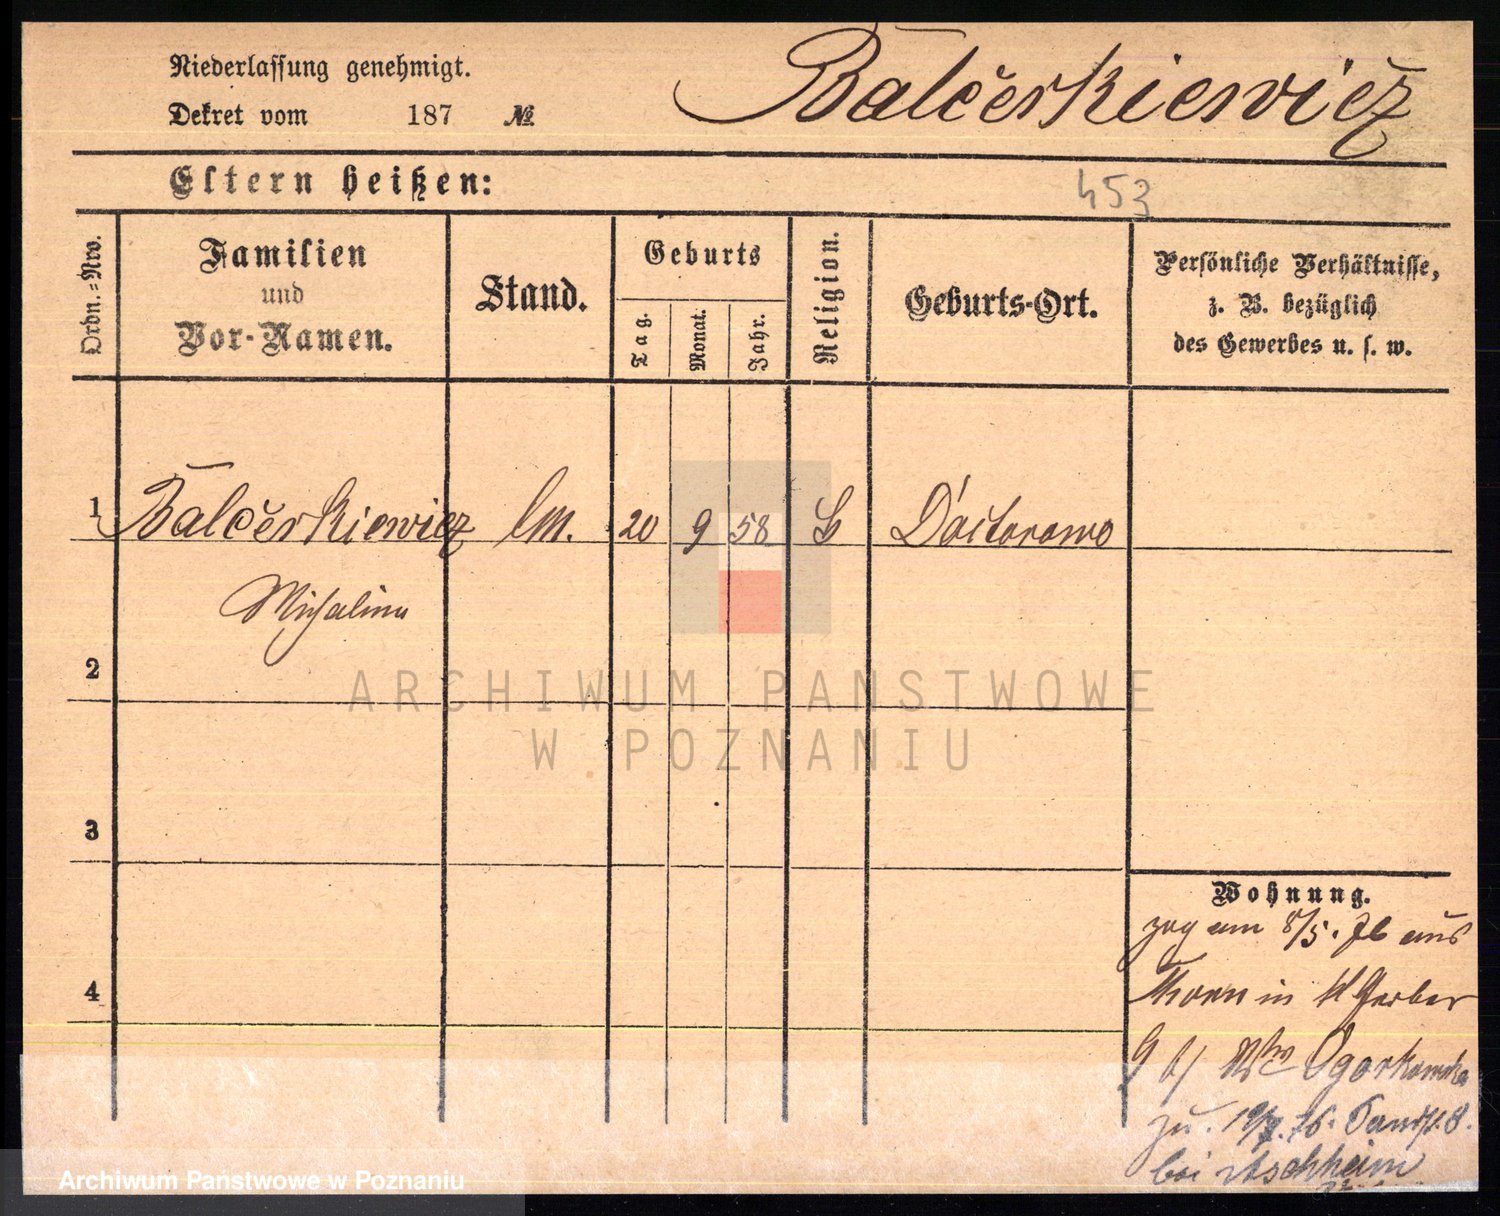 Niederlassung genehmigt.
Dekret vom 187 №
Balcerkiewicz
Eltern heißen:
453
Ordn.=Nro.
Familien
und
Vor-Namen.
Stand.
Geburts
Tag.
Monat.
Jahr.
Religion.
Geburts-Ort.
Persönliche Verhältnisse,
z. B. bezüglich
des Gewerbes u. s. w.
1 Balcerkiewicz 20 9 58 Doctorowo
Michalina
2
3
4
Wohnung.
zog am 8/5. 76 aus
Thorn in Kl Gerber
9 b/ Wwe Ogorkowska
zu. 19/7. 76.
bei
ARCHIWUM PANSTWOWE
W POZNANIU
Archiwum Państwowe w Poznaniu